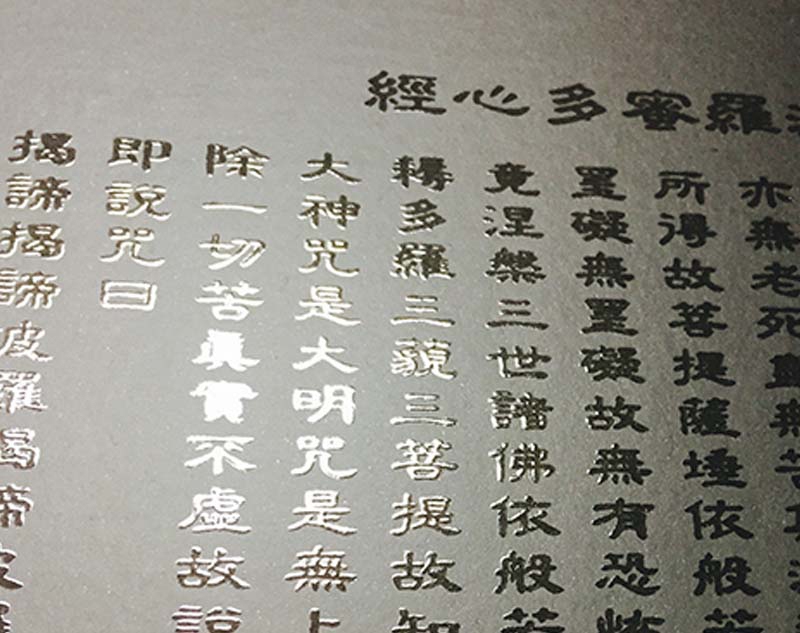 羅蜜多心經
亦無老死盡無苦
所得故菩提薩埵依般若
罣礙無罣礙故無有恐怖
竟涅槃三世諸佛依般若
耨多羅三藐三菩提故知
大神咒是大明咒是無上
除一切苦眞實不虛故說
即說咒曰
揭諦揭諦波羅揭諦波